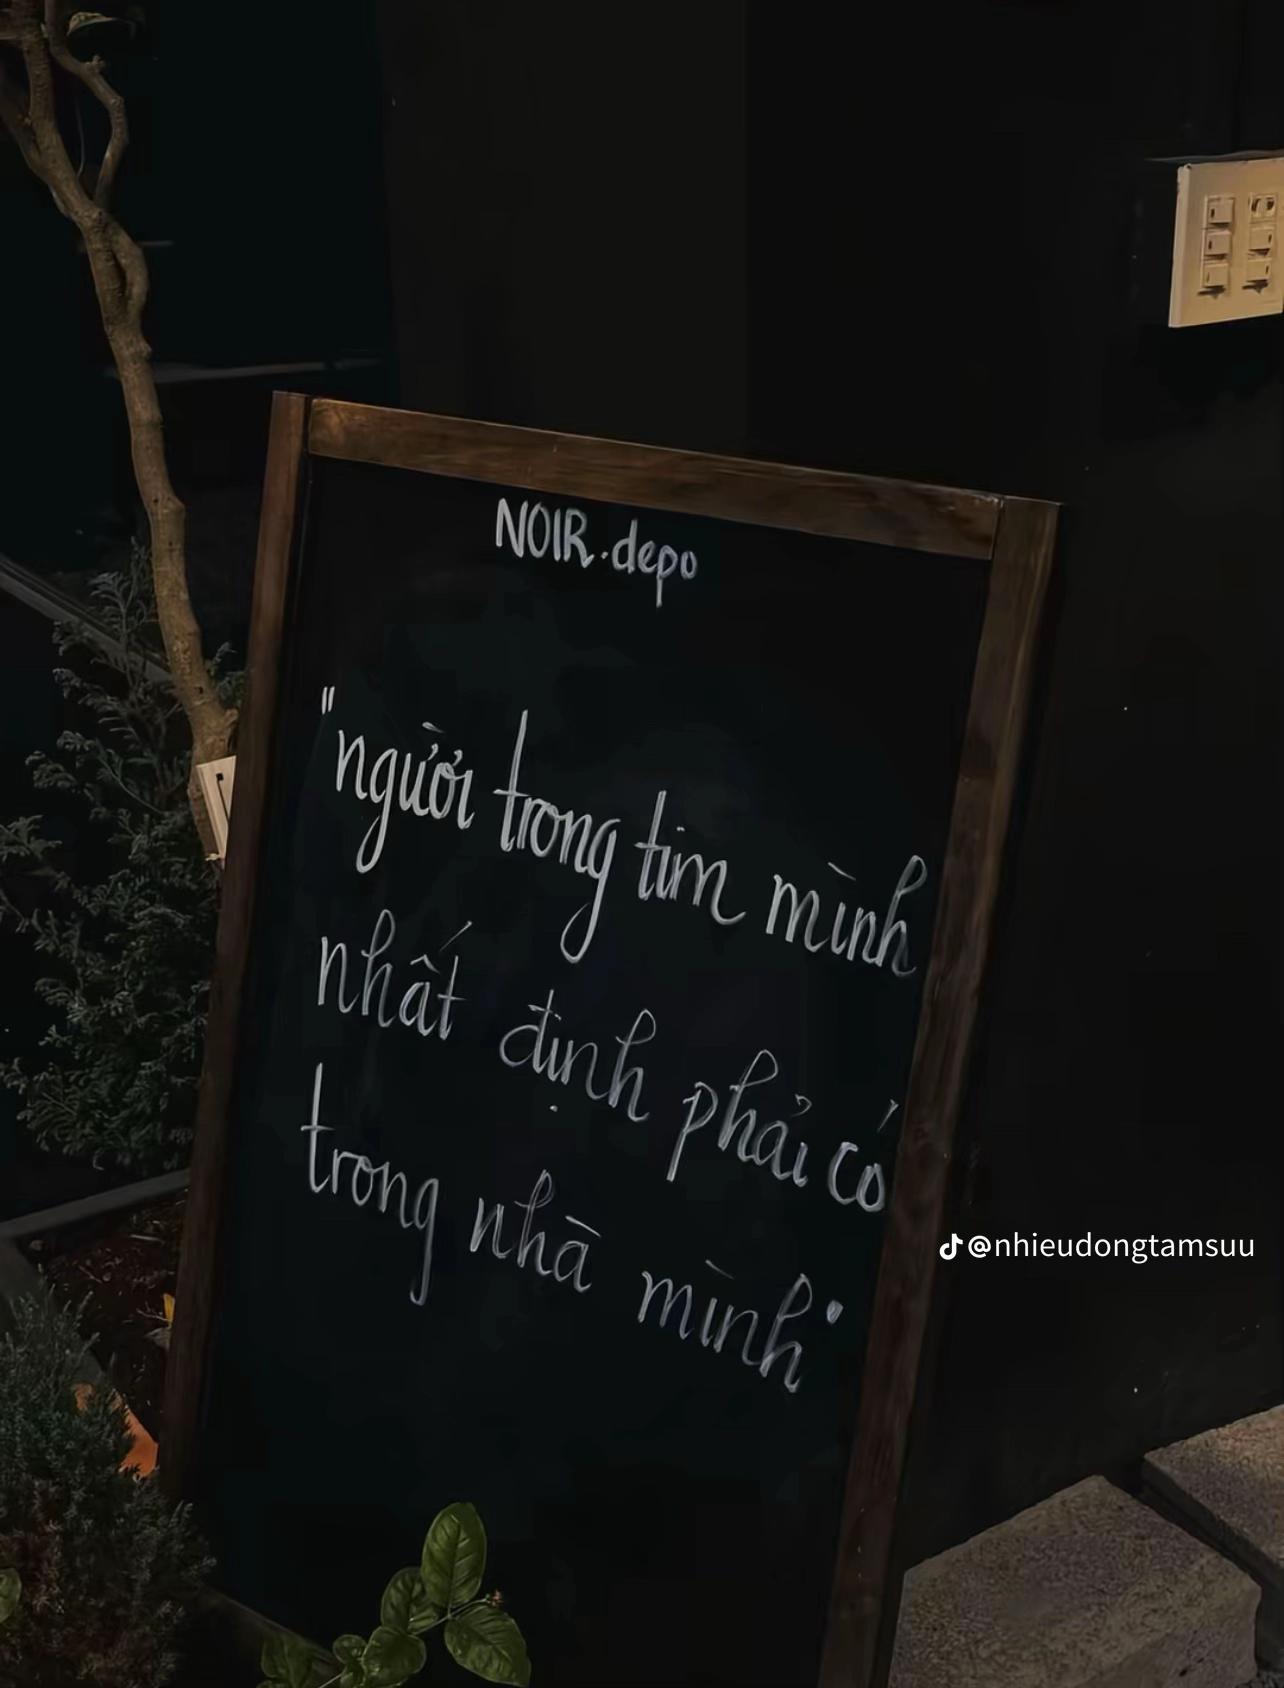 NOIR.depo
"người trong tim mình
nhất định phải có
trong nhà mình"
@nhieudongtamsuu